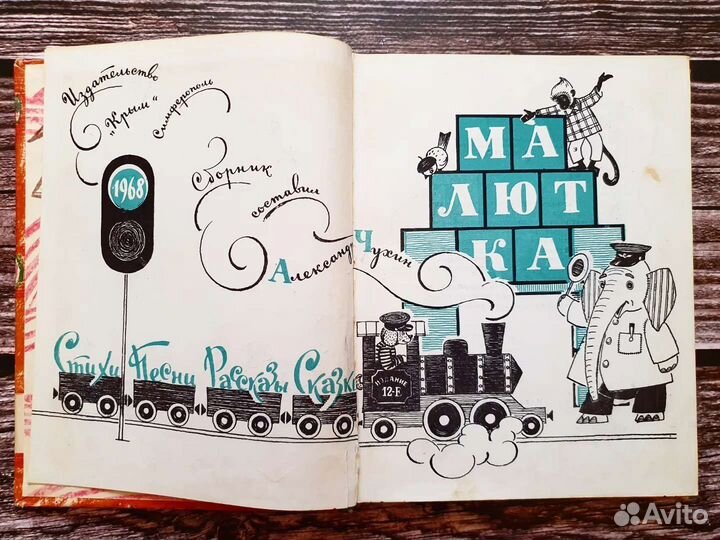 Издательство
„Крым“
Симферополь
1968
Сборник
составил
Александр Чухин
МА
ЛЮТ
КА
Стихи Песни Рассказы Сказки
ИЗДАНИЕ
12-Е
Avito